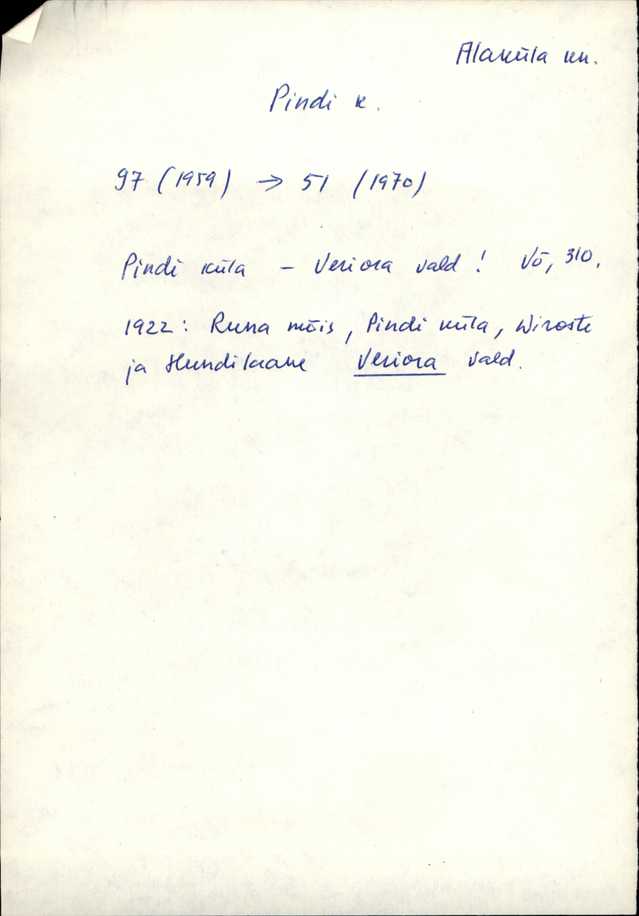 Alaküla kn.
Pindi k.
97 (1959) → 51 (1970)
Pindi küla – Veriora vald! Võ, 310.
1922: Runa mõis, Pindi küla, Wiroste
ja Veriora vald.